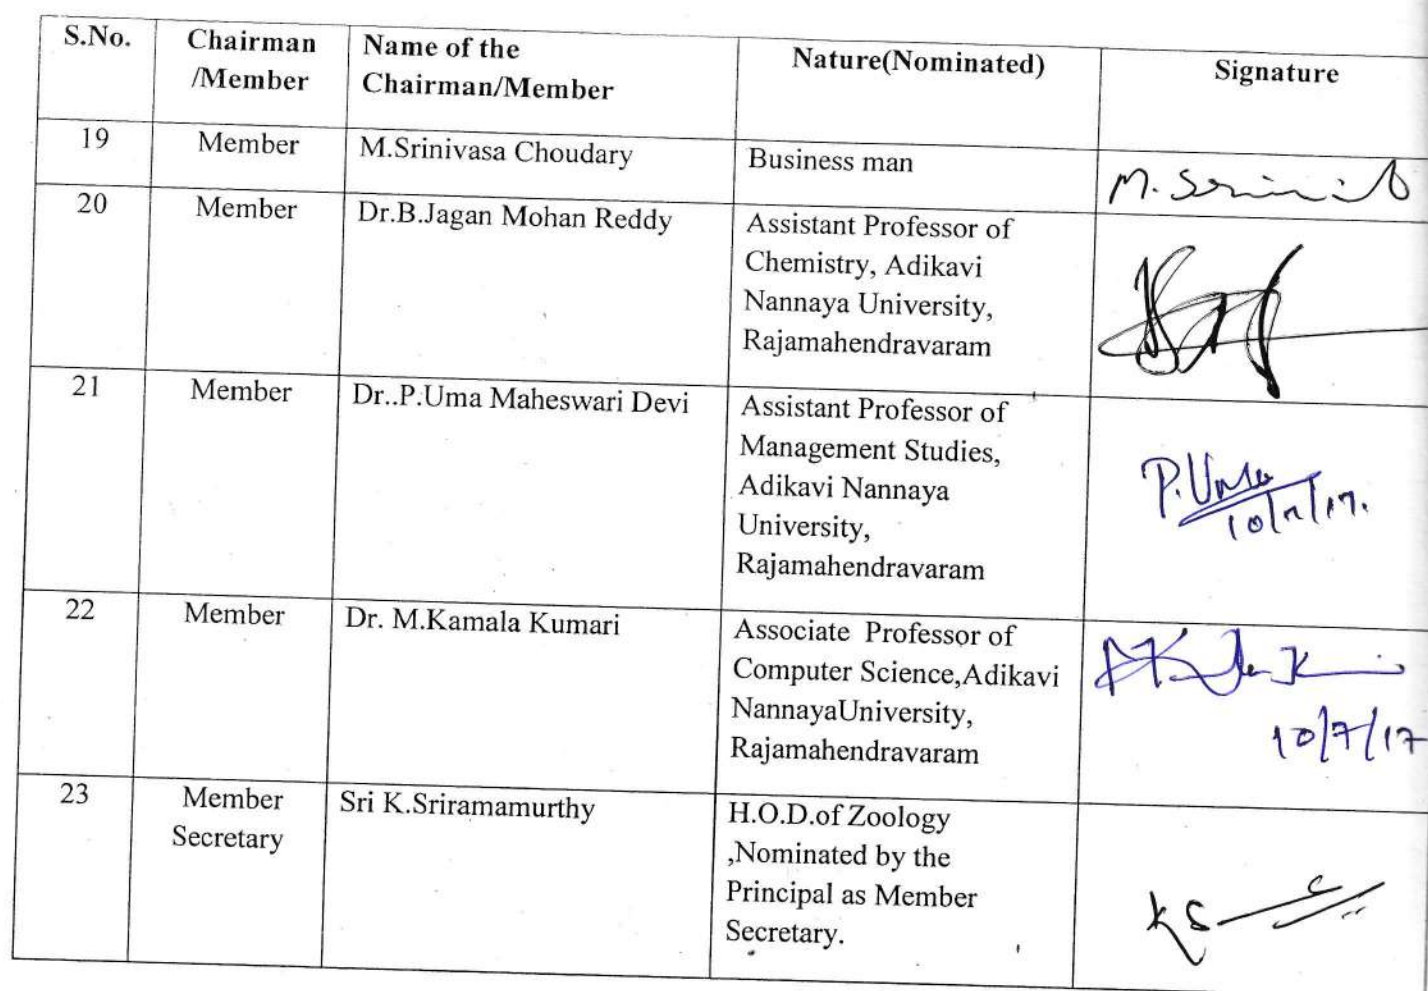 S.No. Chairman /Member Name of the Chairman/Member Nature(Nominated) Signature
19 Member M.Srinivasa Choudary Business man M.
20 Member Dr.B.Jagan Mohan Reddy Assistant Professor of
Chemistry, Adikavi
Nannaya University,
Rajamahendravaram
21 Member Dr..P.Uma Maheswari Devi Assistant Professor of
Management Studies,
Adikavi Nannaya
University,
Rajamahendravaram
P.Uma
10/7/17.
22 Member Dr. M.Kamala Kumari Associate Professor of
Computer Science,Adikavi
NannayaUniversity,
Rajamahendravaram
10/7/17
23 Member Secretary Sri K.Sriramamurthy H.O.D.of Zoology
,Nominated by the
Principal as Member
Secretary.